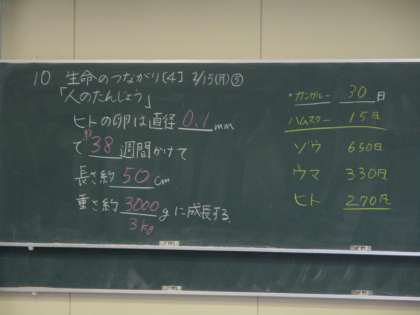 10 生命のつながり[4] 2/15(月)⑤
「人のたんじょう」
ヒトの卵は直径 0.1 mm
で 約38 週間かけて
長さ約 50 cm
重さ約 3000 g に成長する
3kg
・カンガルー 30 日
ハムスター 15日
ゾウ 650日
ウマ 330日
ヒト 270日